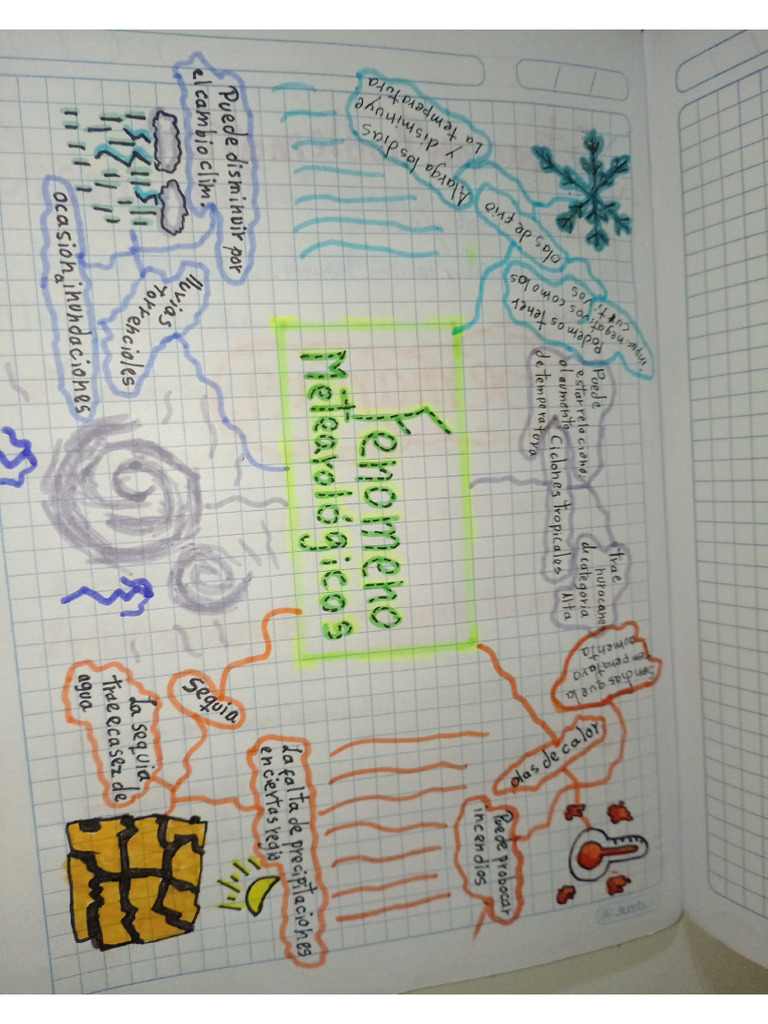 Fenomeno
Meteorológicos
olas de frio
Alarga los dias
y disminuye
La temperatura
Podemos tener
negativos como los
Puede
estar relaciona.
al aumento
de temperatura
Ciclones tropicales
trae
huracanes
de categoria
Alta
olas de calor
Son dias que la
temperatura
aumenta
Puede probocar
incendios
sequia
La sequia
trae ecasez de
agua
La falta de precipitaciones
en ciertas regio
lluvias
torrenciales
Puede disminuir por
el cambio clim.
ocasiona inundaciones